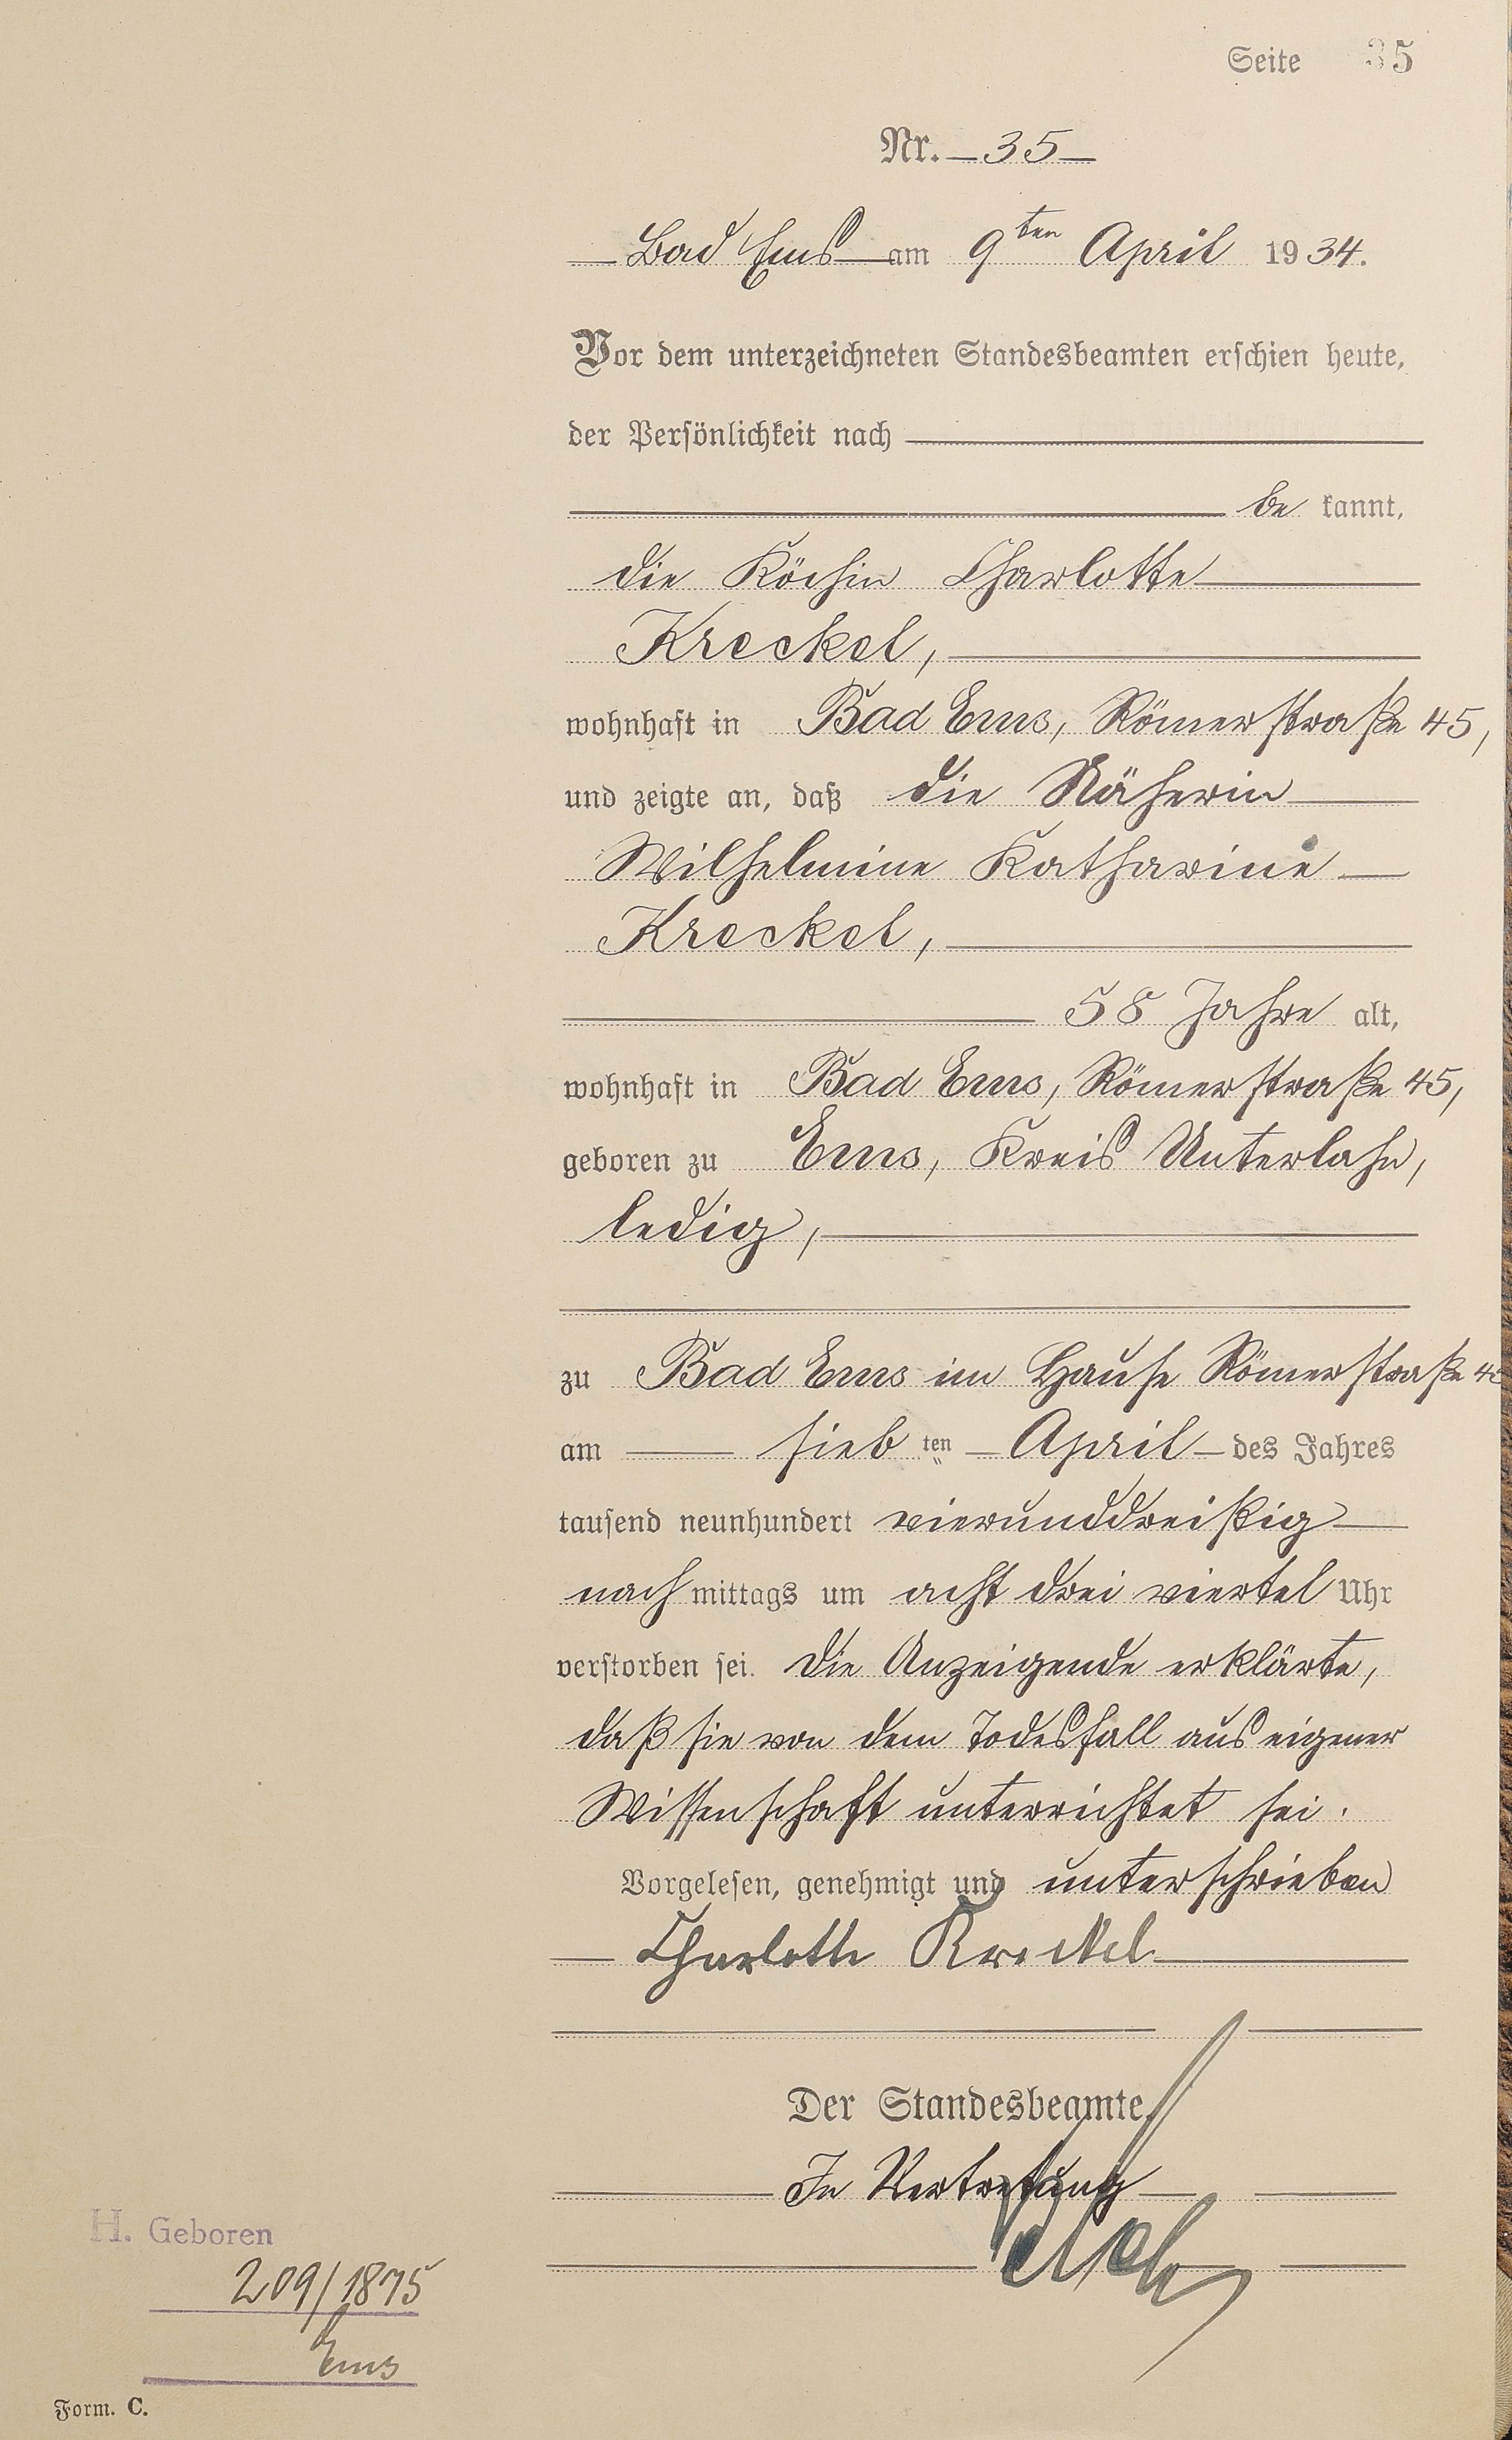 Seite 35
Nr. 35
Bad Ems am 9ten April 1934.
Vor dem unterzeichneten Standesbeamten erschien heute,
der Persönlichkeit nach
be kannt,
die Köchin Charlotte
Kreckel,
wohnhaft in Bad Ems, Römerstraße 45,
und zeigte an, daß die Näherin
Wilhelmine Katharine
Kreckel,
58 Jahre alt,
wohnhaft in Bad Ems, Römerstraße 45,
geboren zu Ems, Kreis Unterlahn,
ledig,
zu Bad Ems im Hause Römerstraße
am siebten April des Jahres
tausend neunhundert vierunddreißig
nachmittags um acht drei viertel Uhr
verstorben sei. Die Anzeigende erklärte,
daß sie von dem Todesfall aus eigener
Wissenschaft unterrichtet sei.
Vorgelesen, genehmigt und unterschrieben
Charlotte Kreckel
Der Standesbeamte.
In Vertretung
H. Geboren
209/1875
Ems
Form. C.